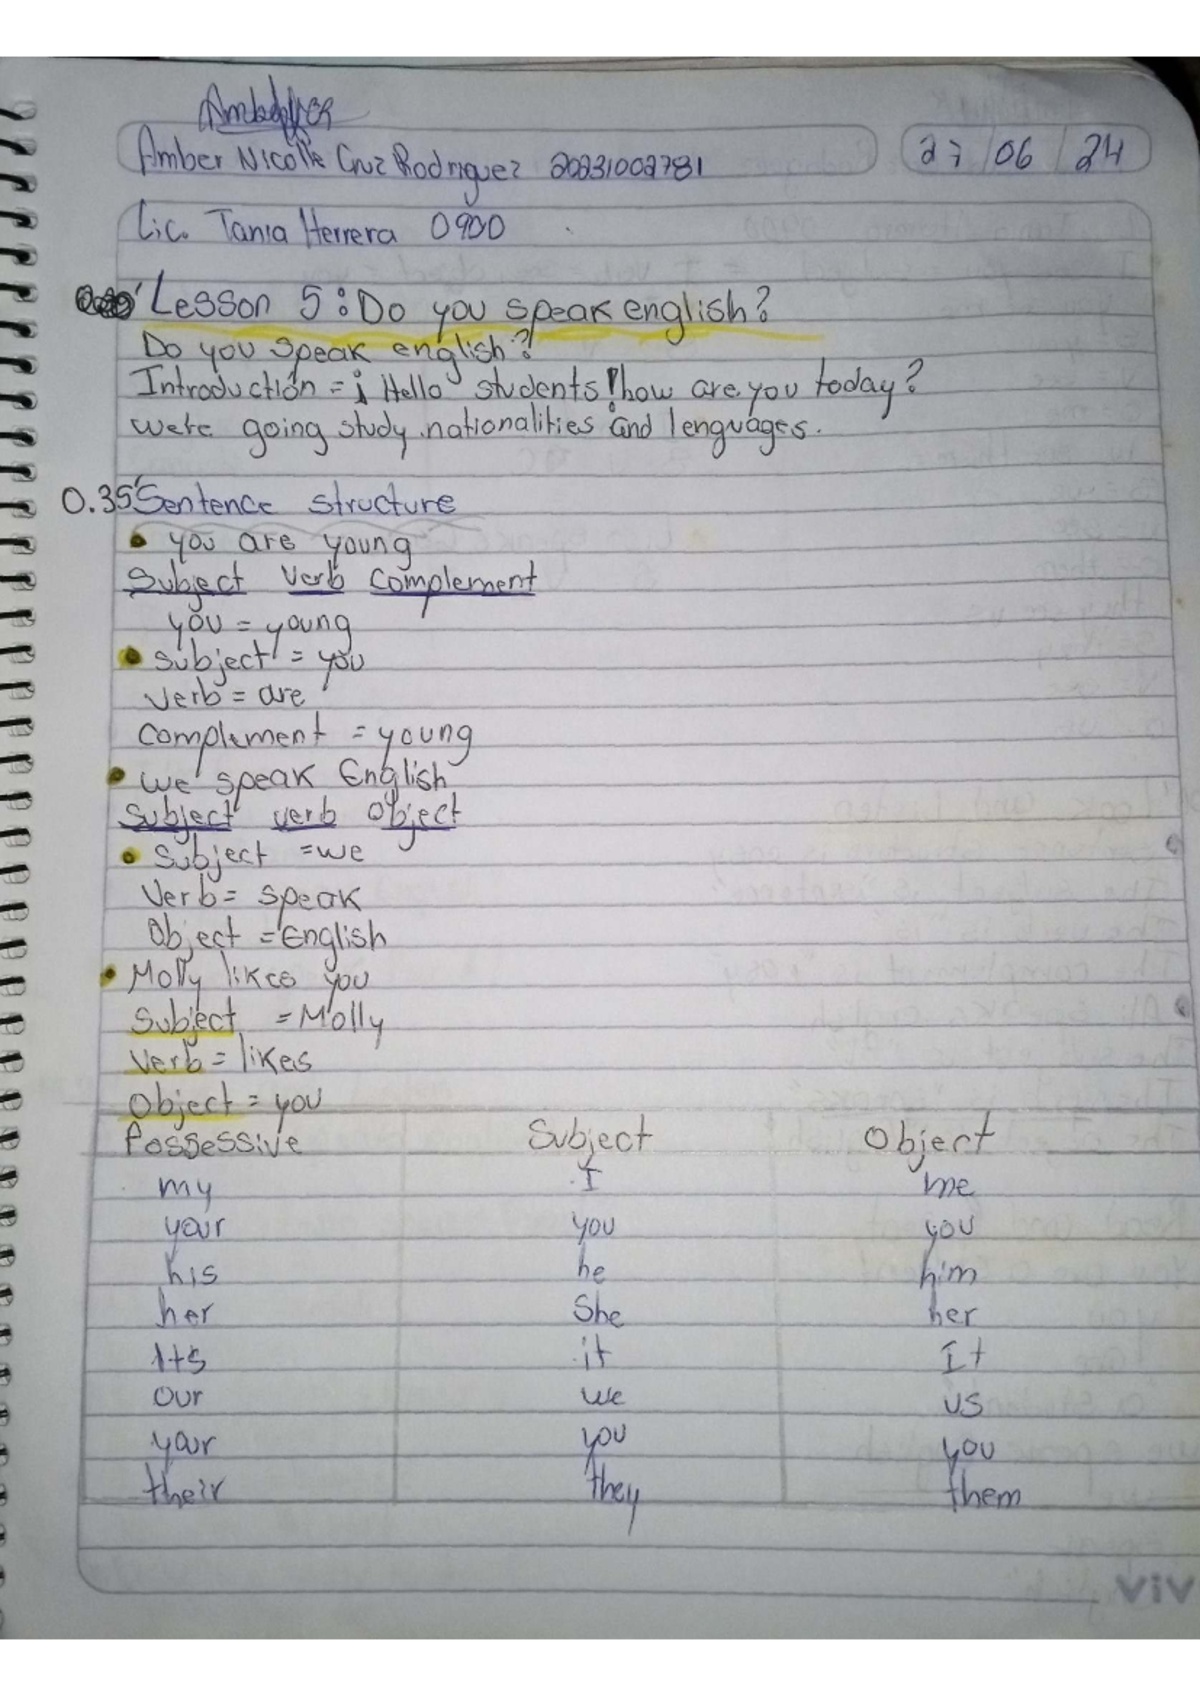 Amber Nicolle Cruz Rodriguez 20231002781
27 06 24
Lic. Tania Herrera 0900
Lesson 5: Do you speak english?
Do you speak english?
Introduction = ¡ Hello students! how are you today?
we're going study nationalities and lenguages.
0.35' Sentence structure
• you are young
Subject Verb Complement
you = young
• subject = you
verb = are
Complement = young
• we speak English
Subject verb Object
• Subject = we
Verb = speak
Object = English
• Molly likes you
Subject = Molly
Verb = likes
Object = you
Possessive Subject Object
my I me
your you you
his he him
her She her
Its it It
our we us
your you you
their they them
viv